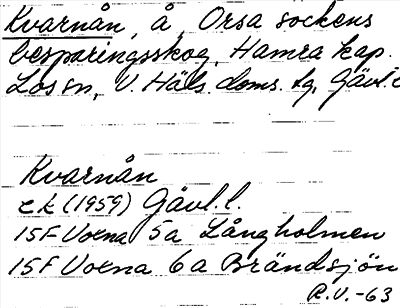 Kvarnån, å, Orsa sockens
besparingsskog, Hamra kap.
Los sn, V. Häls. doms. tg, Gävl.
Kvarnån
ek (1959) Gävl. l.
15F Voxna 5a Långholmen
15F Voxna 6a Brändsjön
R.V.-63